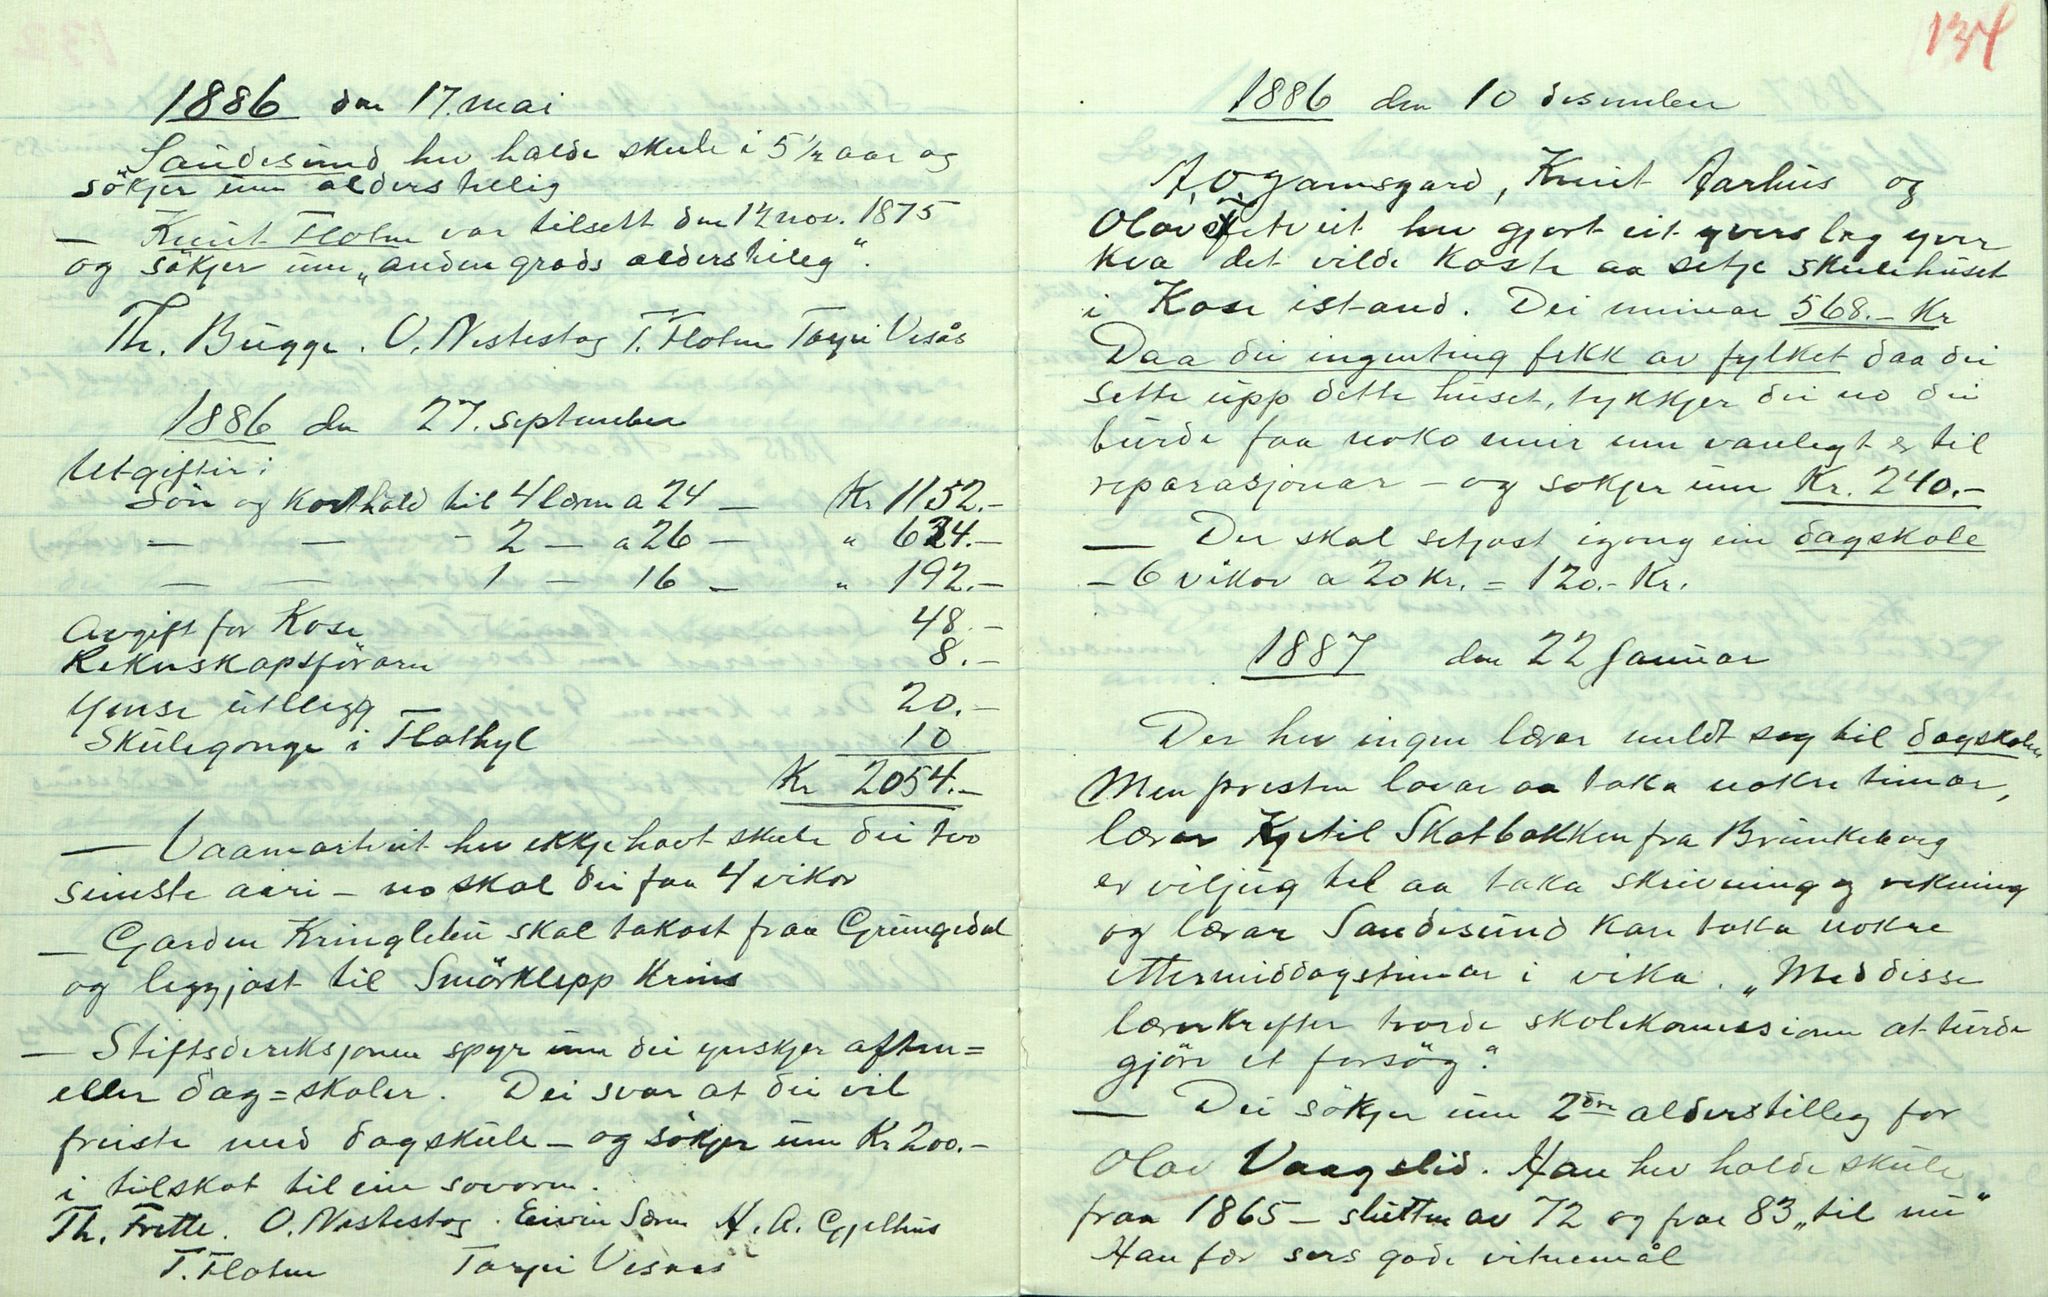 1886 den 17. mai
Sandesund hev halde skule i 5 1/2 aar og
sökjer um alderstillig
— Knut Flotin var tilsett den 14 nov. 1875
og sökjer um „anden grads alderstileg".
Th. Bugge. O. Nestestog T. Flotin Torjei Vesås
1886 den 27. september
Utgiftir:
Lön og kosthald til 4 lærar a 24 — Kr 1152.-
— — - 2 — a 26 — " 624.-
— — 1 — 16 — " 192.-
Avgift for Kose 48.-
Rekneskapsföraren 8.-
Ymse utlegg 20.-
Skulegonge i Flothyl 10
Kr 2054.-
— Vaamartveit hev ikkje havt skule dei two
sinste aari - no skal dei faa 4 vikor
— Garden Kringlebu skal takast fraa Grungedal
og leggjast til Smörklepp Krins
— Stiftsdireksjonen spyr um dei ynskjer aften=
eller dag=skoler. Dei svar at dei vil
freiste med dagskule - og sökjer um Kr 200.-
i tilskot til ein sovoren.
Th. Frette. O. Nestestog. Eivin Særen H. A. Gjelhus
T. Flotin Torjei Vesaas
134
1886 den 10 desember
A. O. Jamsgard, Knut Aarhus og
Olav Tveitveit hev gjort eit yverslag yver
kva det vilde koste aa setje skulehuset
i Kose istand. Dei meinar 568.- Kr
Daa dei ingenting fekk av fylket daa dei
sette upp dette huset, tykkjer dei no dei
burde faa noko meir enn vanlegt er til
reparasjonar - og sokjer um Kr. 240.-
— Der skal setjast igong ein dagskole
- 6 vikor a 20 kr. = 120.- Kr.
1887 den 22 Januar
Der hev ingen lærar meldt seg til dagskolen
Men presten lovar aa taka nokre timar,
lærar Kjetil Skotbakken fra Brunkeberg
er viljug til aa taka skrivning og rekning
og lærar Sandesund kan taka nokre
ettermiddagstimar i vika. „Med disse
lærerkrefter trorde skolekomissionen at turde
gjöre et forsög."
— Dei sökjer um 2dre alderstilleg for
Olav Vaagslid. Han hev halde skule
fraa 1865 - slutten av 72 og fraa 83 „til nu"
Han fær sers gode vitnemål